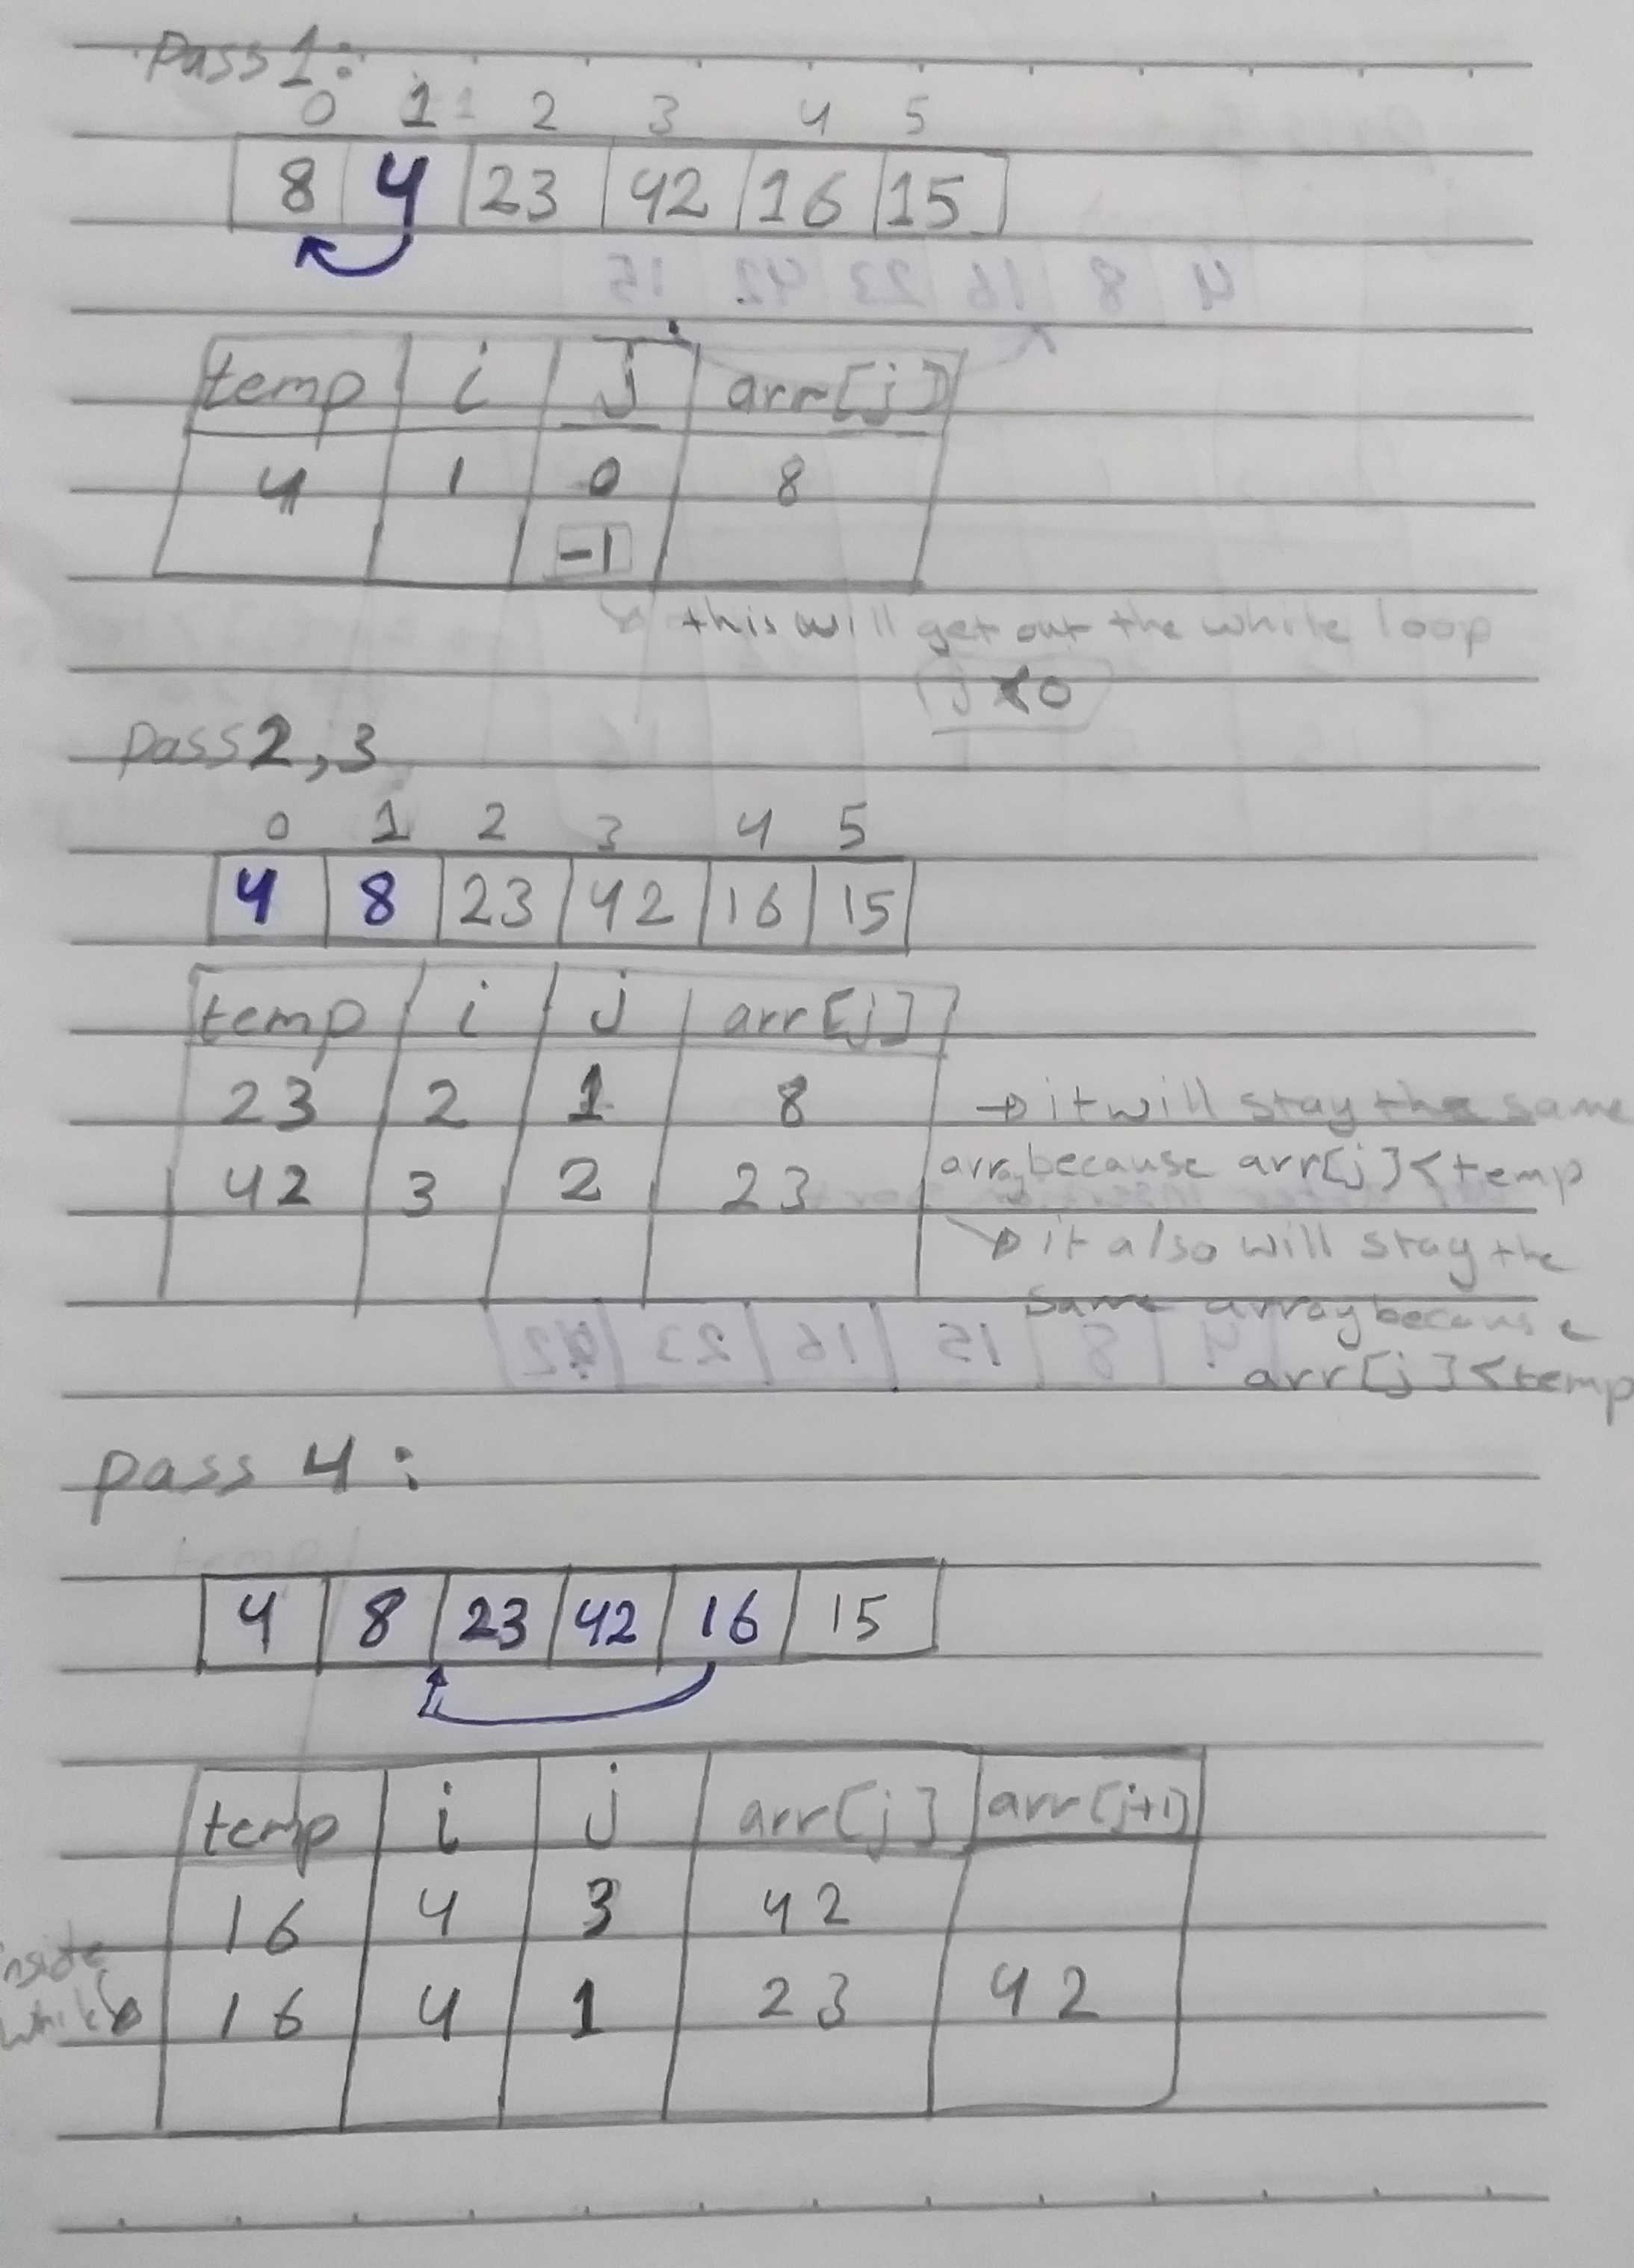 Pass 1:
0 1 2 3 4 5
8 4 23 42 16 15
temp i j arr[j]
4 1 0 8
-1
this will get out the while loop
j < 0
pass 2, 3
0 1 2 3 4 5
4 8 23 42 16 15
temp i j arr[j]
23 2 1 8 → it will stay the same
array because arr[j] < temp
42 3 2 23
→ it also will stay the
same array because
arr[j] < temp
pass 4:
4 8 23 42 16 15
temp i j arr[j] arr[j+1]
16 4 3 42
inside
while → 16 4 1 23 42